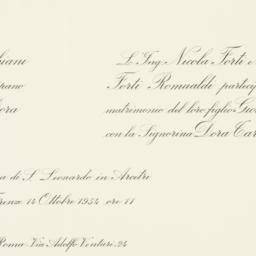 hiani
L'Ing. Nicola Forti e
pano
Forti Romualdi partecip
ora
matrimonio del loro figlio Gio
con la Signorina Dora Tar
a di S. Leonardo in Arcetri
Firenze 14 Ottobre 1954 ore 11
Roma - Via Adolfo Venturi, 24